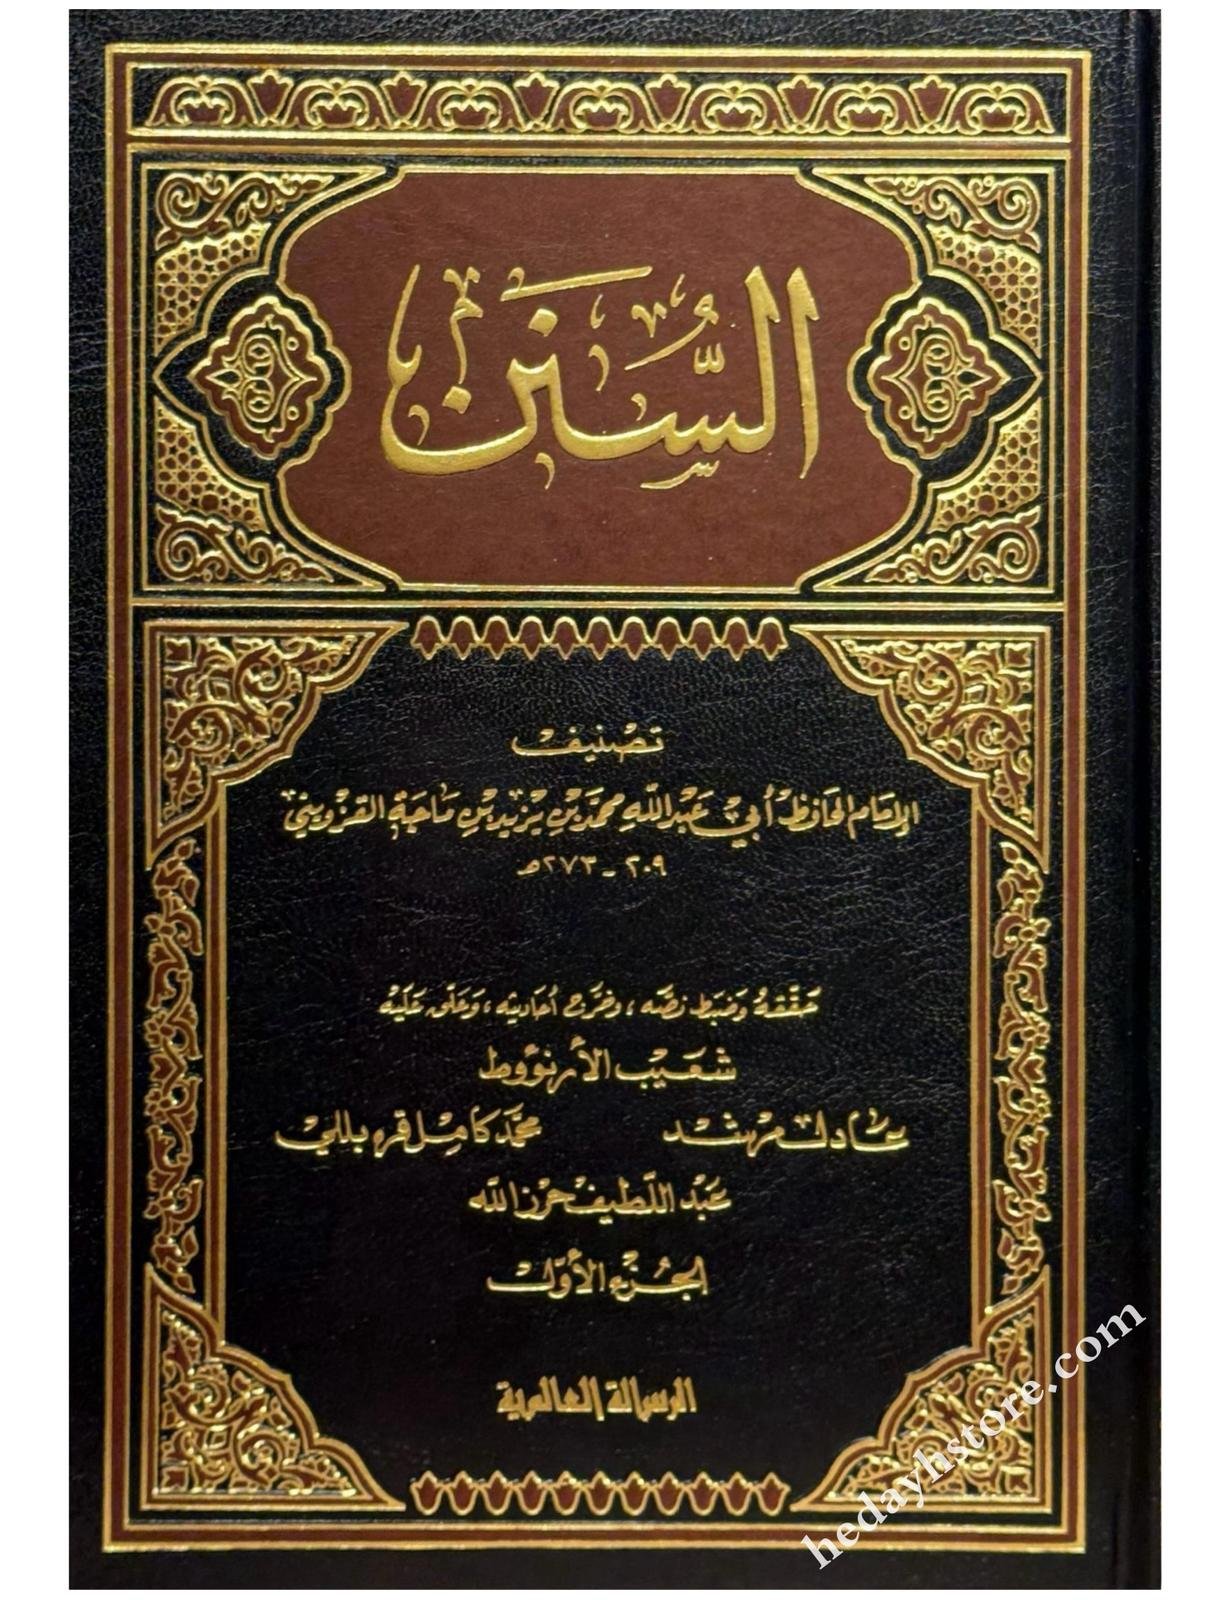 السُّنَن
تصنيف
الإمام الحافظ أبي عبد الله محمد بن يزيد بن ماجة القزويني
٢٠٩ - ٢٧٣ هـ
حققه وضبط نصه، وخرج أحاديثه، وعلق عليه
شعيب الأرنؤوط
عادل مرشد محمد كامل قره بللي
عبد اللطيف حرز الله
الجزء الأول
الرسالة العالمية
hedayhstore.com